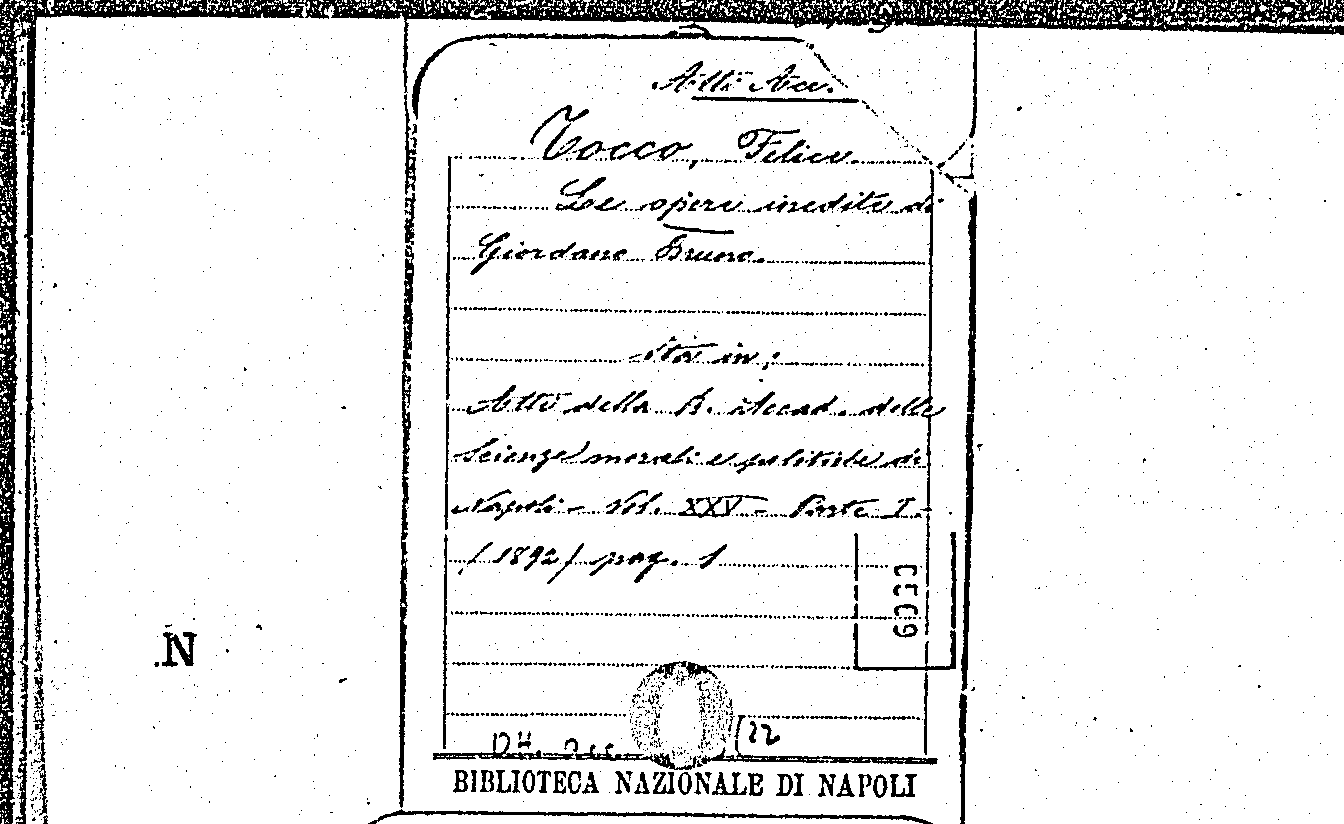 Atti Acc.
Tocco, Felice.
Le opere inedite di
Giordano Bruno.
Sta in:
Atti della R. Accad. delle
Scienze morali e politiche di
Napoli - Vol. XXV - Parte I -
/ 1892 / pag. 1
6033
N
(22
BIBLIOTECA NAZIONALE DI NAPOLI